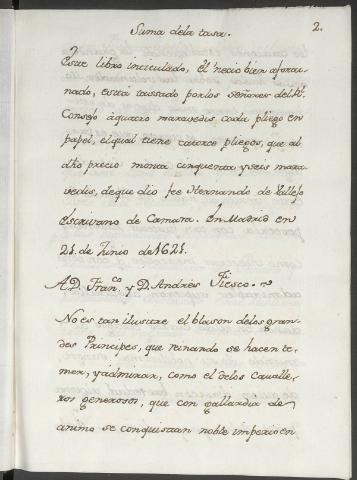 2.
Suma dela tasa.
Este libro intitulado, El necio bien afortu-
nado, está tassado por los señores del Rl.
Consejo á quatro maravedis, cada pliego en
papel, el qual tiene catorce pliegos, que al
dho precio monta cinquenta y seis mara-
vedis, de que dio fee Hernando de Vallejo
Escrivano de Camara. En Madrid en
21. de Junio de 1621.
A D. Franco. y D. Andrés Fiesco.
No es tan ilustre el blason de los gran-
des Principes, que reinando se hacen te-
mer, y admirar, como el de los Cavalle-
ros generosos, que con gallardia de
animo se conquistan noble imperio en